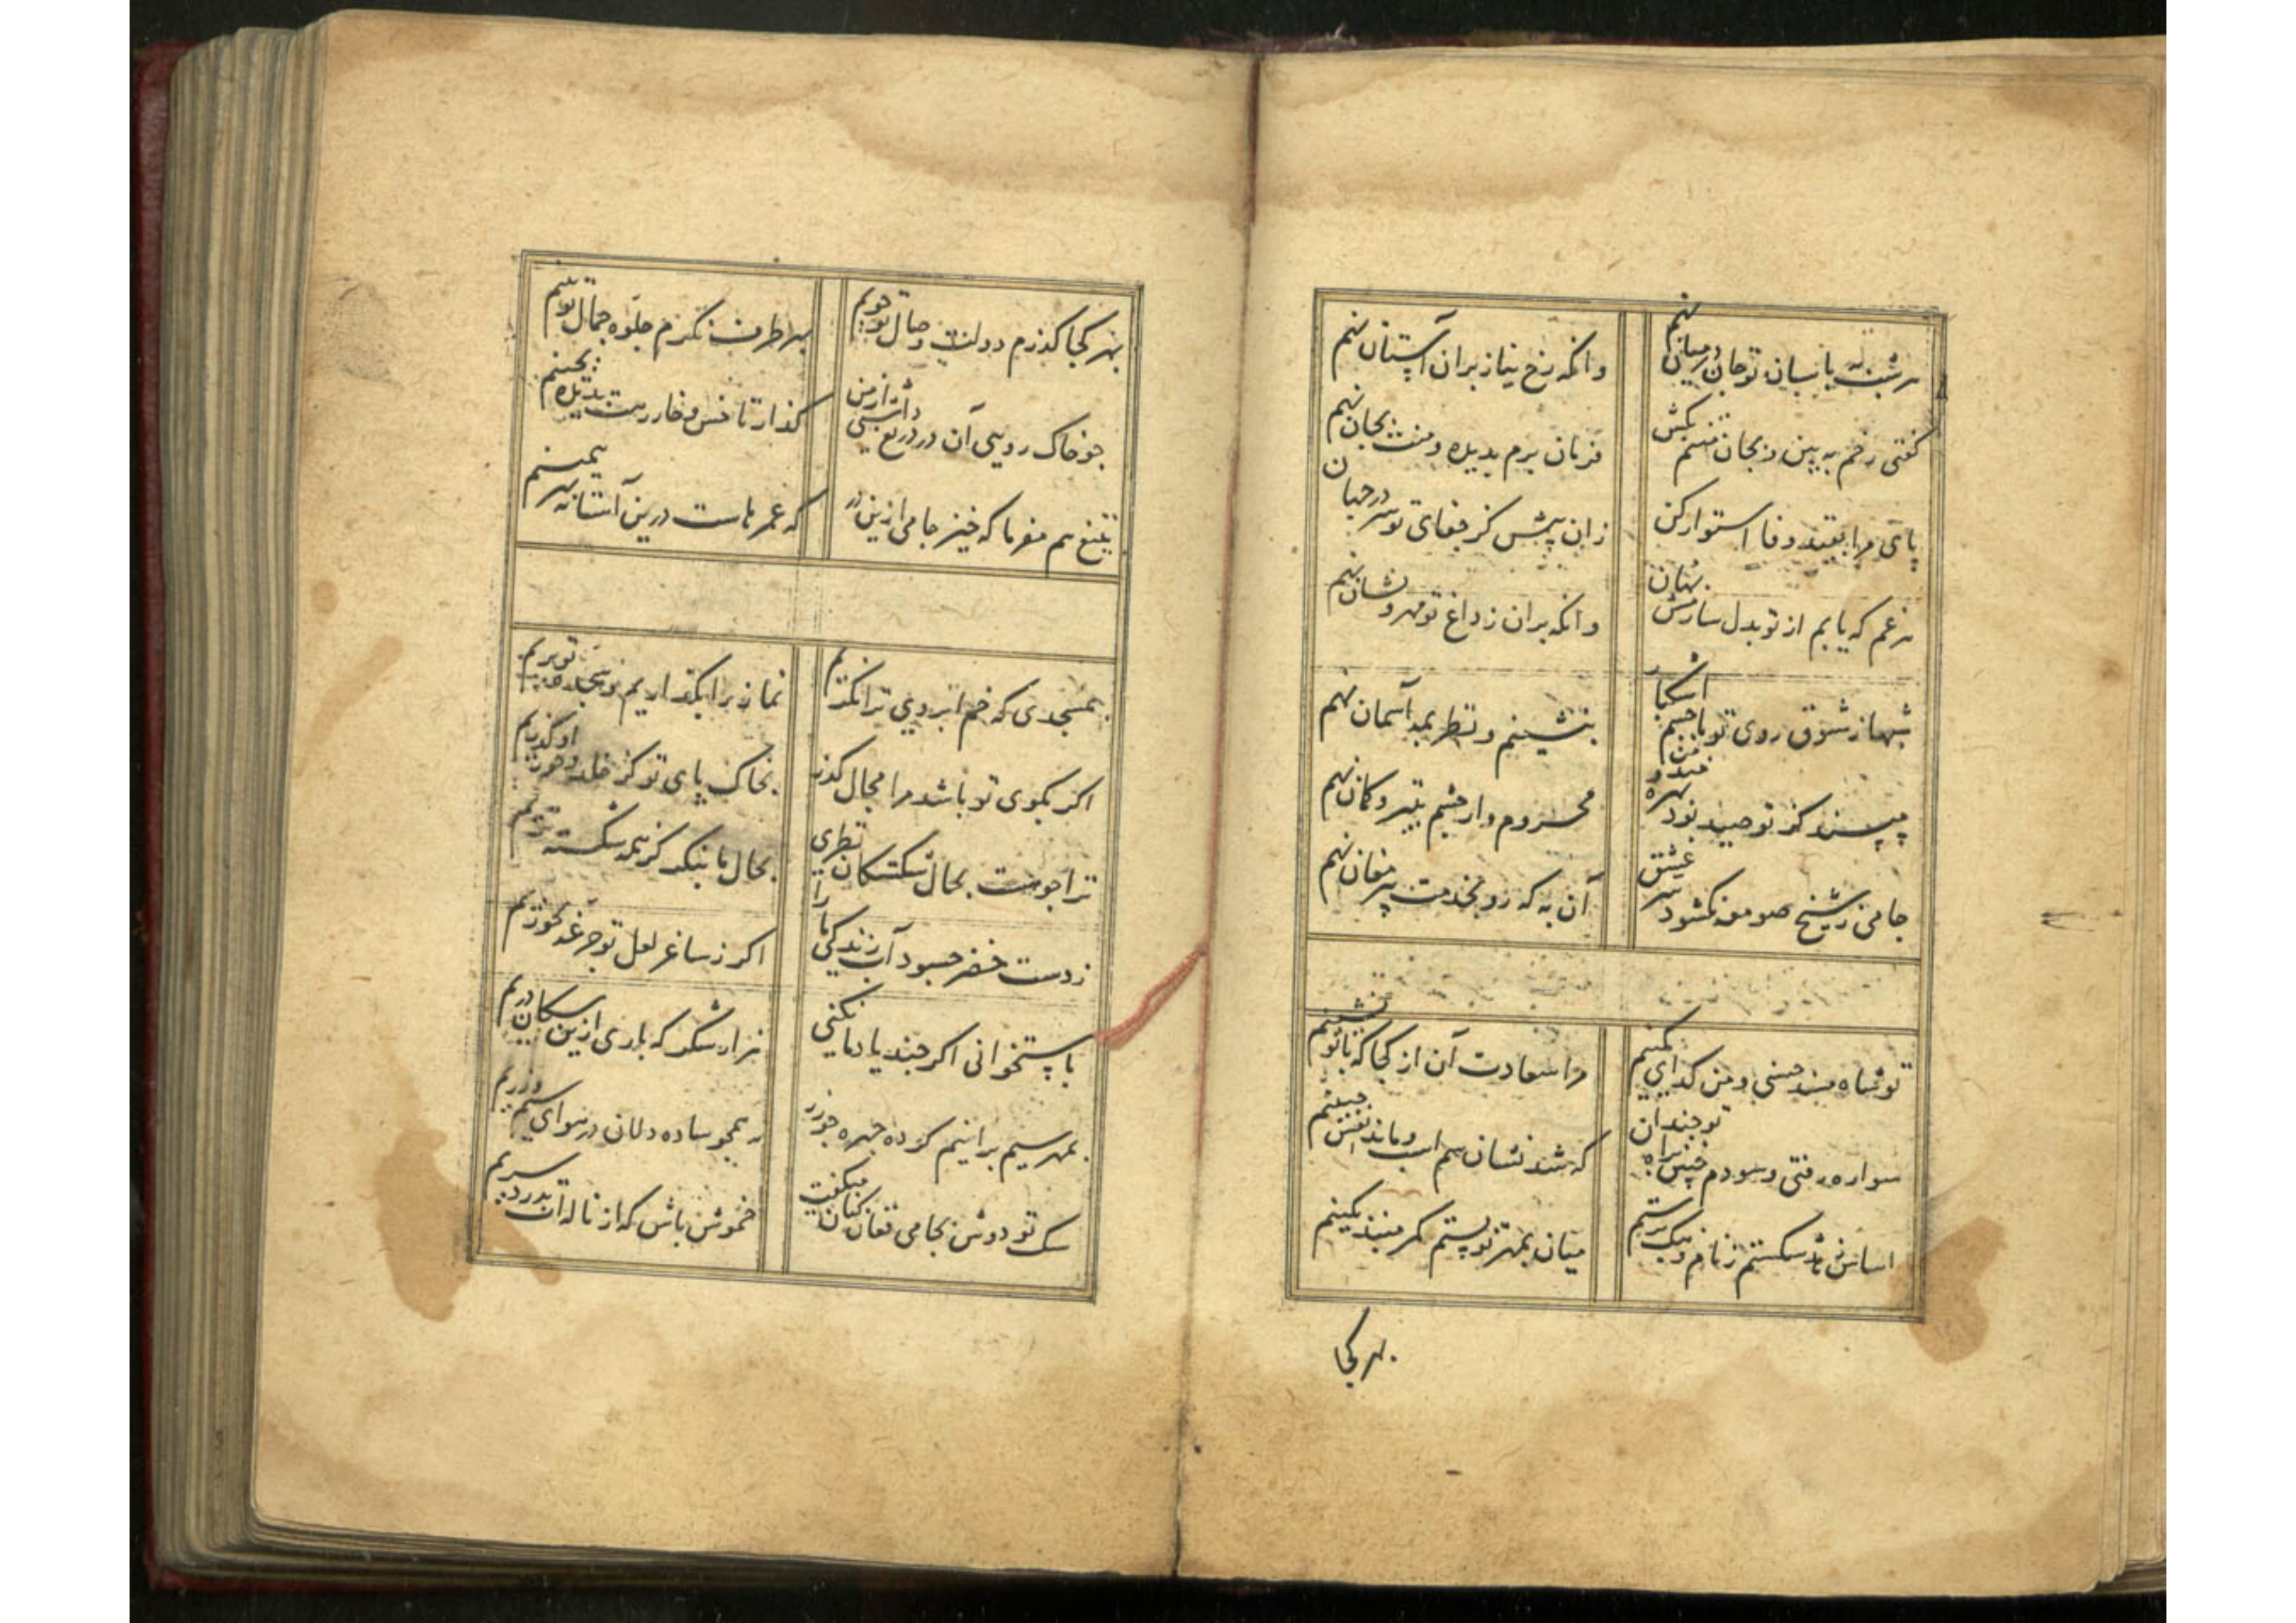 هر شب به پاسبان تو جان در میان نهم
وانکه رخ نیاز بران آستان نهم
کفتی رخم به بین و بجان منتم بکش
فرمان برم بدیده و منت بجان نهم
پای مرا بقید وفا استوار کن
زان پیش کز جفای تو سر در جهان نهم
هر غم که یابم از تو بدل سازمش نهان
وانکه بران ز داغ تو مهر و نشان نهم
شبها ز شوق روی تو با چشم اشکبار
بنشینم و نظر بمه آسمان نهم
مپسند کز تو صید بود بهره‌مند و من
محروم وار چشم بتیر و کمان نهم
جامی ز شیخ صومعه نکشود سر عشق
آن به که رو بخدمت پیر مغان نهم
تو شاه مسند حسنی و من کدای کمینم
مرا سعادت آن از کجا که با تو نشینم
سواره رفتی و سودم جبین براه تو چندان
که شد نشان سم اسب و ماند نقش جبینم
اساس زهد شکستم ز نام و ننک برستم
میان بمهر تو بستم کمر مبند بکینم
بهر کجا
بهر کجا کذرم دولت وصال تو جویم
بهر طرف نکرم جلوه جمال تو بینم
چو خاک روبی آن در دریغ داشتی از من
کذار تا خس و خار رهت بدیده بچینم
بتیغ هم مفرما که خیز جامی ازین در
که عمرهاست درین آستانه بهر همینم
بمسجدی که خم ابروی ترا نکریم
نماز را بکذاریم و سجده تو بریم
اکر بکوی تو باشد مرا مجال کذر
بخاک پای تو کز خلد و حور او کذریم
ترا چو هست بحال شکستکان نظری
بحال ما بنکر کز همه شکسته تریم
ز دست خضر چه سود آب زندکی ما را
اکر ز ساغر لعل تو جرعه نخوریم
باستخوانی اکر چند یاد ما نکنی
هزار شکر که باری ازین سکان دریم
بمهر سیم برانیم کرده چهره چو زر
نه همچو ساده دلان در هوای سیم و زریم
سک تو دوش بجامی فغان کنان میکفت
خموش باش که از ناله‌ات بدرد سریم